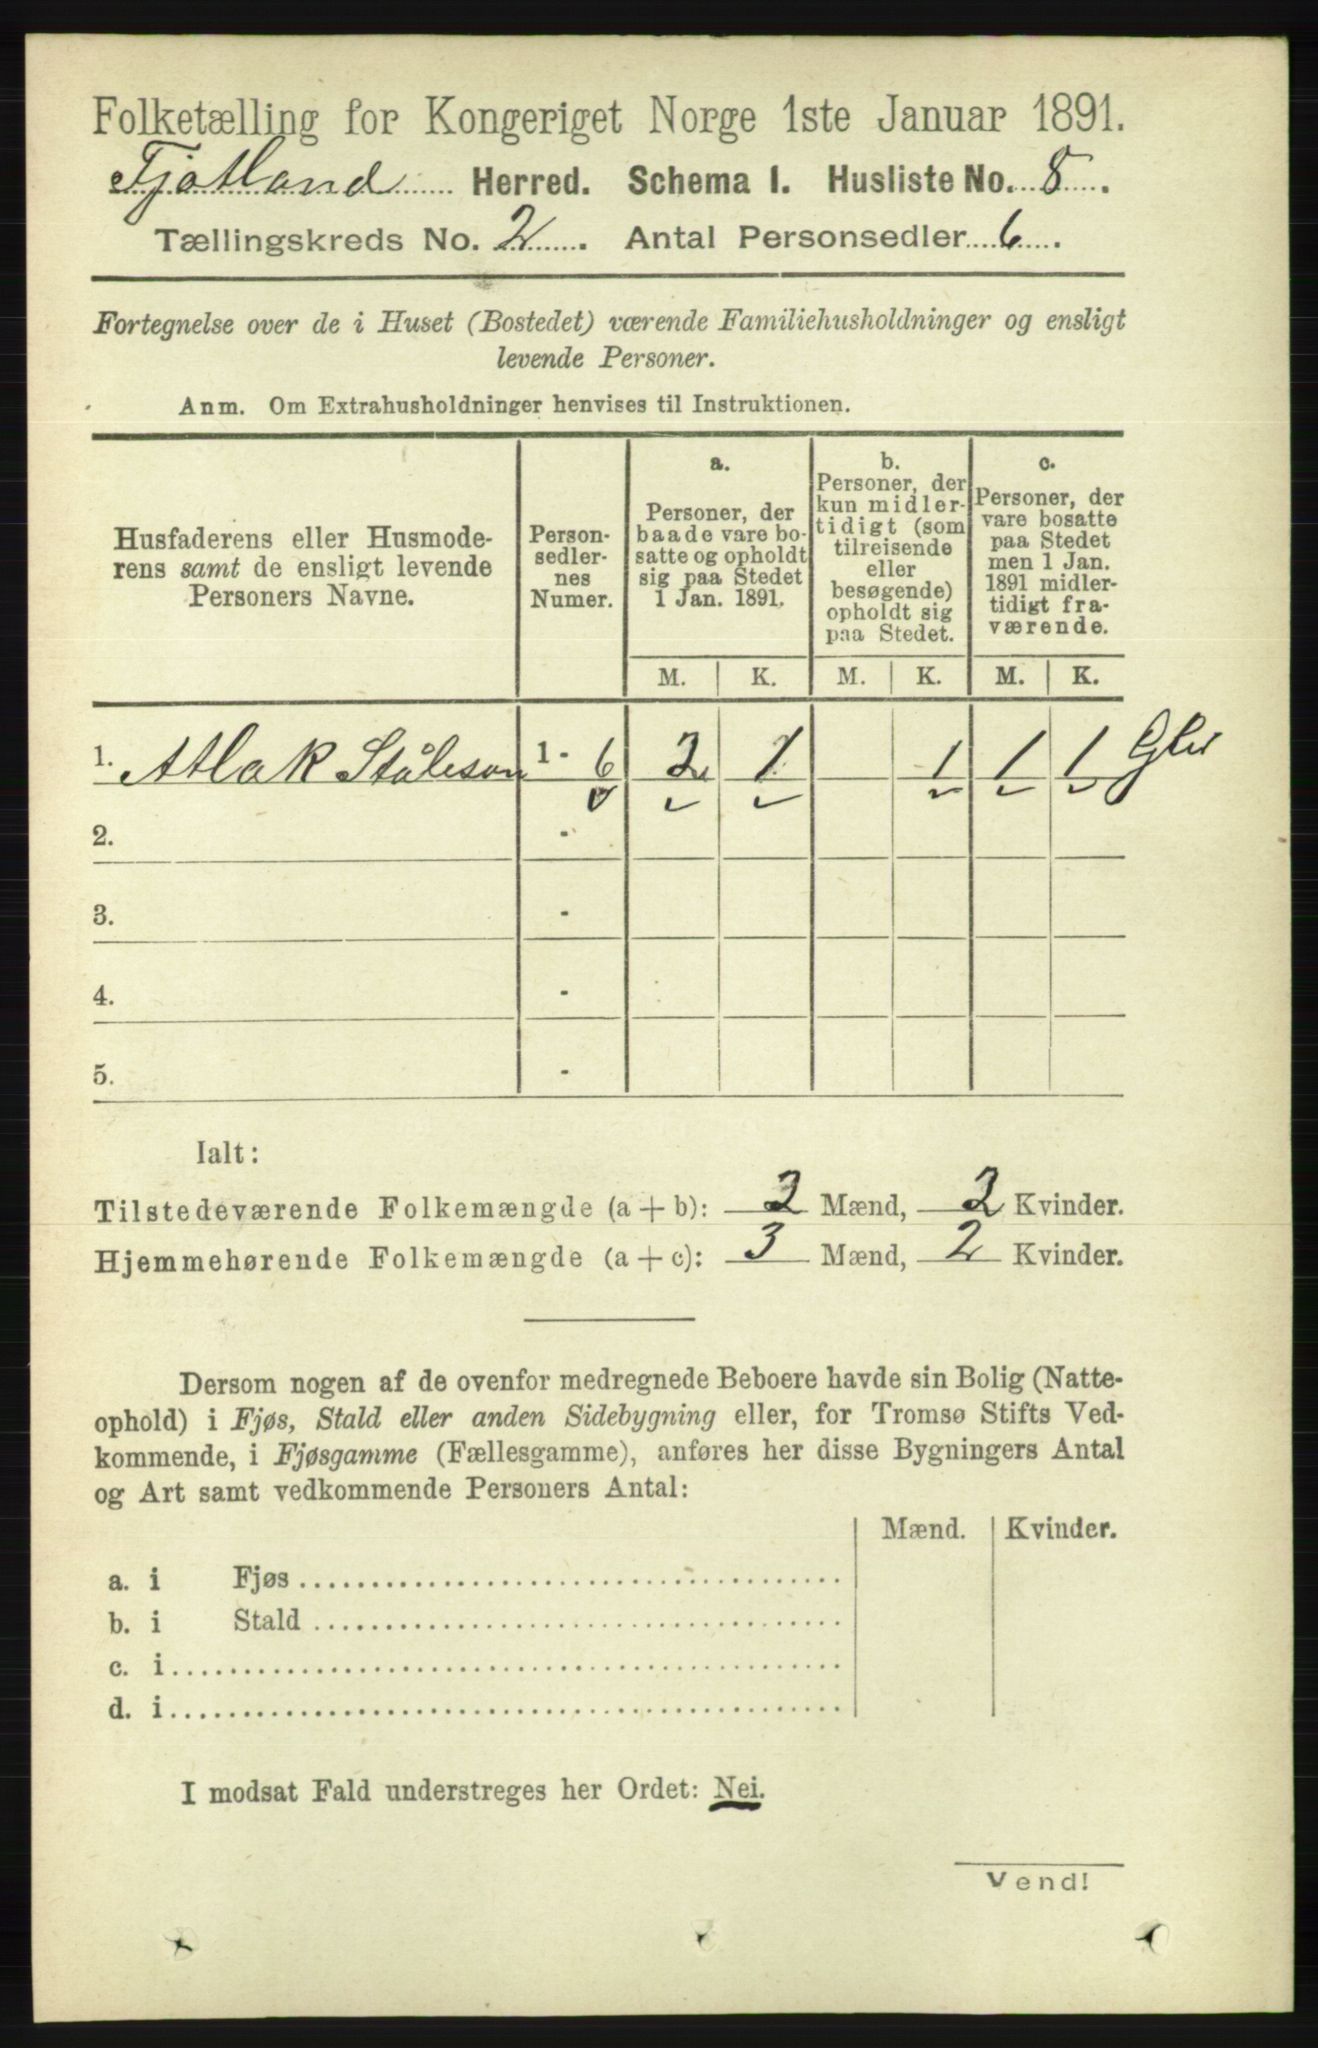 Folketælling for Kongeriget Norge 1ste Januar 1891.
Fjotland Herred. Schema I. Husliste No. 8.
Tællingskreds No. 2. Antal Personsedler 6.
Fortegnelse over de i Huset (Bostedet) værende Familiehusholdninger og ensligt
levende Personer.
Anm. Om Extrahusholdninger henvises til Instruktionen.
Husfaderens eller Husmode-
rens samt de ensligt levende
Personers Navne.
Person-
sedler-
nes
Numer.
a.
Personer, der
baade vare bo-
satte og opholdt
sig paa Stedet
1 Jan. 1891.
b.
Personer, der
kun midler-
tidigt (som
tilreisende
eller
besøgende)
opholdt sig
paa Stedet.
c.
Personer, der
vare bosatte
paa Stedet
men 1 Jan.
1891 midler-
tidigt fra-
værende.
M. K. M. K. M. K.
1. Atlak Ståleson 1 - 6 2 1 1 1 1
2. -
3. -
4. -
5. -
Ialt:
Tilstedeværende Folkemængde (a + b): 2 Mænd, 2 Kvinder.
Hjemmehørende Folkemængde (a + c): 3 Mænd, 2 Kvinder.
Dersom nogen af de ovenfor medregnede Beboere havde sin Bolig (Natte-
ophold) i Fjøs, Stald eller anden Sidebygning eller, for Tromsø Stifts Ved-
kommende, i Fjøsgamme (Fællesgamme), anføres her disse Bygningers Antal
og Art samt vedkommende Personers Antal:
Mænd. Kvinder.
a. i Fjøs
b. i Stald
c. i
d. i
I modsat Fald understreges her Ordet: Nei.
Vend!